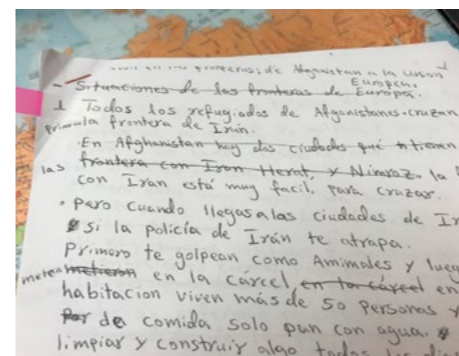 fronteras: de Afganistan a la Union
Europea.
- Situaciones de las fronteras de Europa.
1 Todos los refugiados de Afganistanes cruzan
primula frontera de Irán.
· En Afghanistan hay dos ciudades que tienen
las frontera con Iran Herat, y Nimroz. la
con Irán está muy facil, para cruzar.
· Pero cuando llegas a las ciudades de Ir
si la policía de Irán te atrapa.
Primero te golpean como Amimales y lueg
meten metieron en la cárcel, en la cárcel en
habitacion viven más de 50 personas y
Por de comida solo pan con agua.
limpiar y construir algo todos